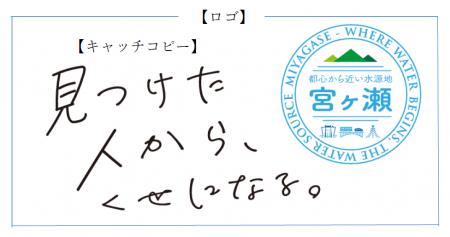 【ロゴ】
【キャッチコピー】
見つけた
人から、
くせになる。
MIYAGASE - WHERE WATER BEGINS, THE WATER SOURCE
都心から近い水源地
宮ヶ瀬